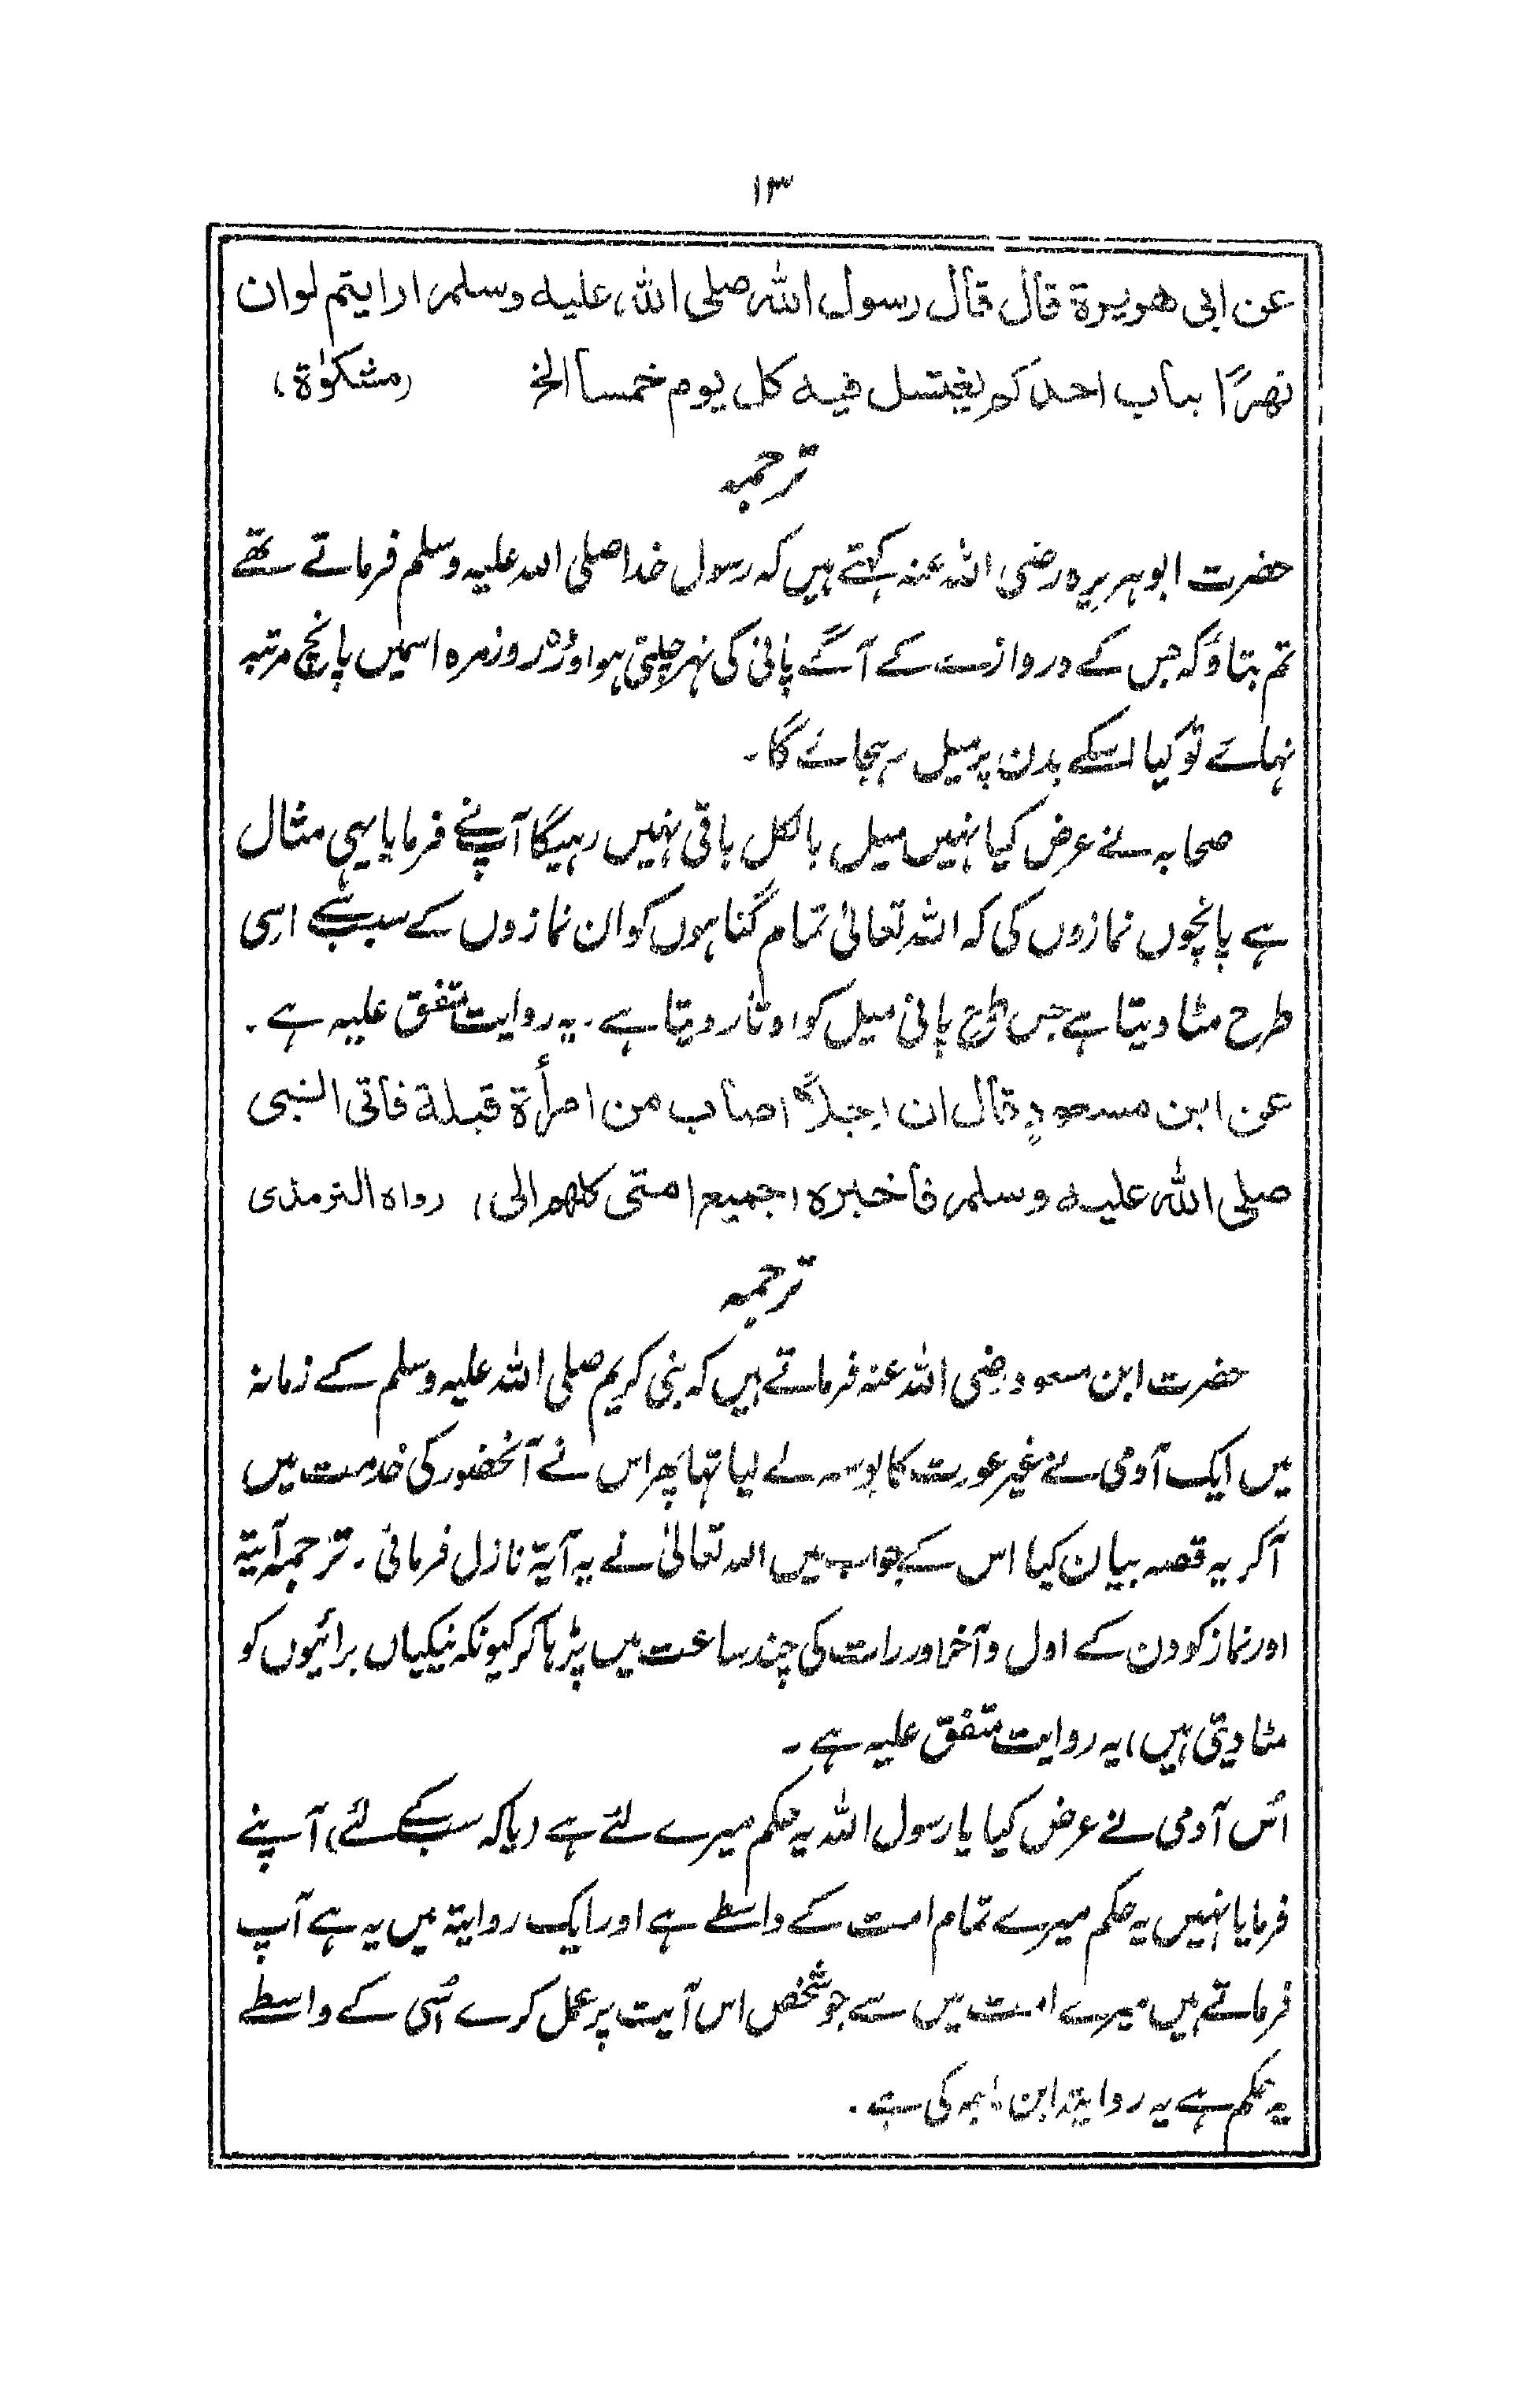 ۱۳
عن ابی هريرة قال قال رسول الله صلى الله عليه وسلم ارايتم لوان
نهرًا بباب احدكم يغتسل فيه كل يوم خمساً الخ (مشكوٰة)
ترجمہ
حضرت ابوہریرہ رضی اللہ عنہ کہتے ہیں کہ رسول خدا صلی اللہ علیہ وسلم فرماتے تھے
تم بتاؤ کہ جس کے دروازے کے آگے پانی کی نہر چلتی ہو اور وہ روزمرہ اسمیں پانچ مرتبہ
نہائے تو کیا اسکے بدن پر میل رہجائے گا۔
صحابہ نے عرض کیا نہیں میل بالکل باقی نہیں رہیگا آپنے فرمایا یہی مثال
ہے پانچوں نمازوں کی کہ اللہ تعالیٰ تمام گناہوں کو ان نمازوں کے سبب سے اسی
طرح مٹا دیتا ہے جس طرح پانی میل کو اوتار دیتا ہے۔ یہ روایت متفق علیہ ہے۔
عن ابن مسعودٍ قال ان رجلاً اصاب من امرأة قبلة فاتی النبی
صلی الله عليه وسلم فاخبره (جميع امتی كلهم الی) رواه الترمذی
ترجمہ
حضرت ابن مسعود رضی اللہ عنہ فرماتے ہیں کہ نبی کریم صلی اللہ علیہ وسلم کے زمانہ
میں ایک آدمی نے غیر عورت کا بوسہ لے لیا تہا پھر اس نے آنحضور کی خدمت میں
آکر یہ قصہ بیان کیا اس کے جواب میں اللہ تعالیٰ نے یہ آیۃ نازل فرمائی۔ ترجمہ آیۃ
اور نماز کو دن کے اول و آخر اور رات کی چند ساعت میں پڑہا کر کیونکہ نیکیاں برائیوں کو
مٹا دیتی ہیں، یہ روایت متفق علیہ ہے۔
اُس آدمی نے عرض کیا یا رسول اللہ یہ حکم میرے لئے ہے (یا کہ سب کے لئے) آپنے
فرمایا نہیں یہ حکم میرے تمام امت کے واسطے ہے اور ایک روایۃ میں یہ ہے آپ
فرماتے ہیں میرے امت میں سے جو شخص اس آیت پر عمل کرے اُسی کے واسطے
یہ حکم ہے یہ روایۃ ابن کی ہے۔